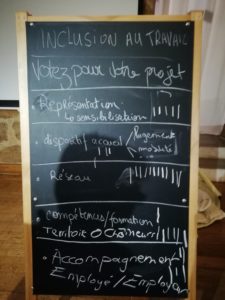 INCLUSION AU TRAVAIL
Votez pour votre projet
- Représentation
↳ sensibilisation
- dispositif accueil / logement
mobilité
- Réseau
- compétences/formation
Territoire
- Accompagnement
Employé / Employeur